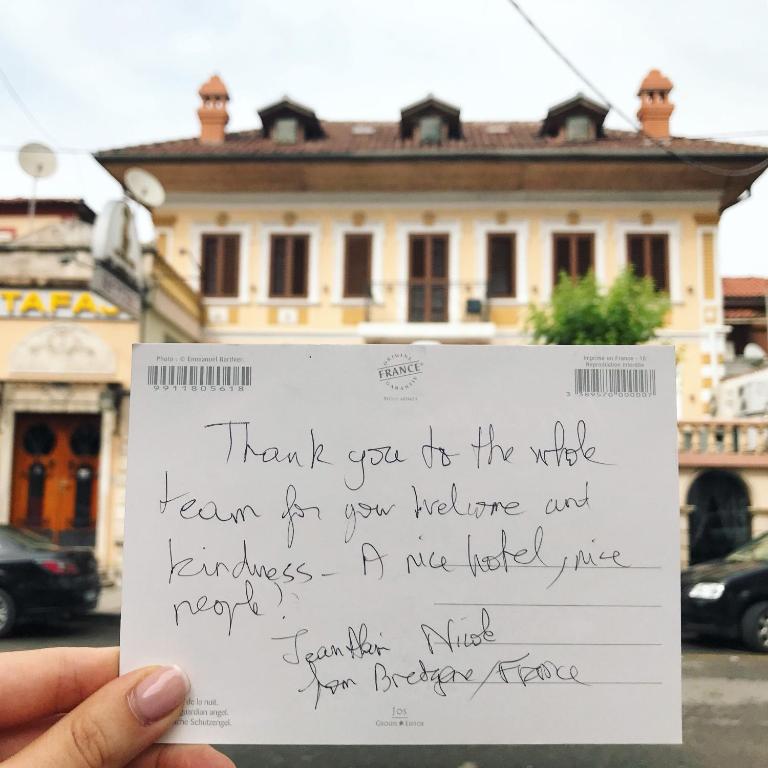 TAFAJ
Photo : © Emmanuel Berthier.
9911805618
ORIGINE
FRANCE
GARANTIE
Imprimé en France - 16
Reproduction interdite
3 389570 000007
Thank you to the whole
team for your welcome and
kindness - A nice hotel, nice
people!
Nicole
from Bretagne/France
de la nuit.
guardian angel.
Schutzengel.
Jos
GROUPE EDITOR